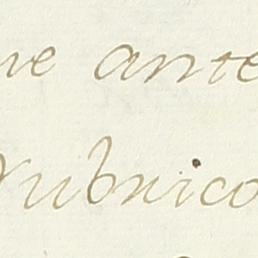 ue ante
rubnico